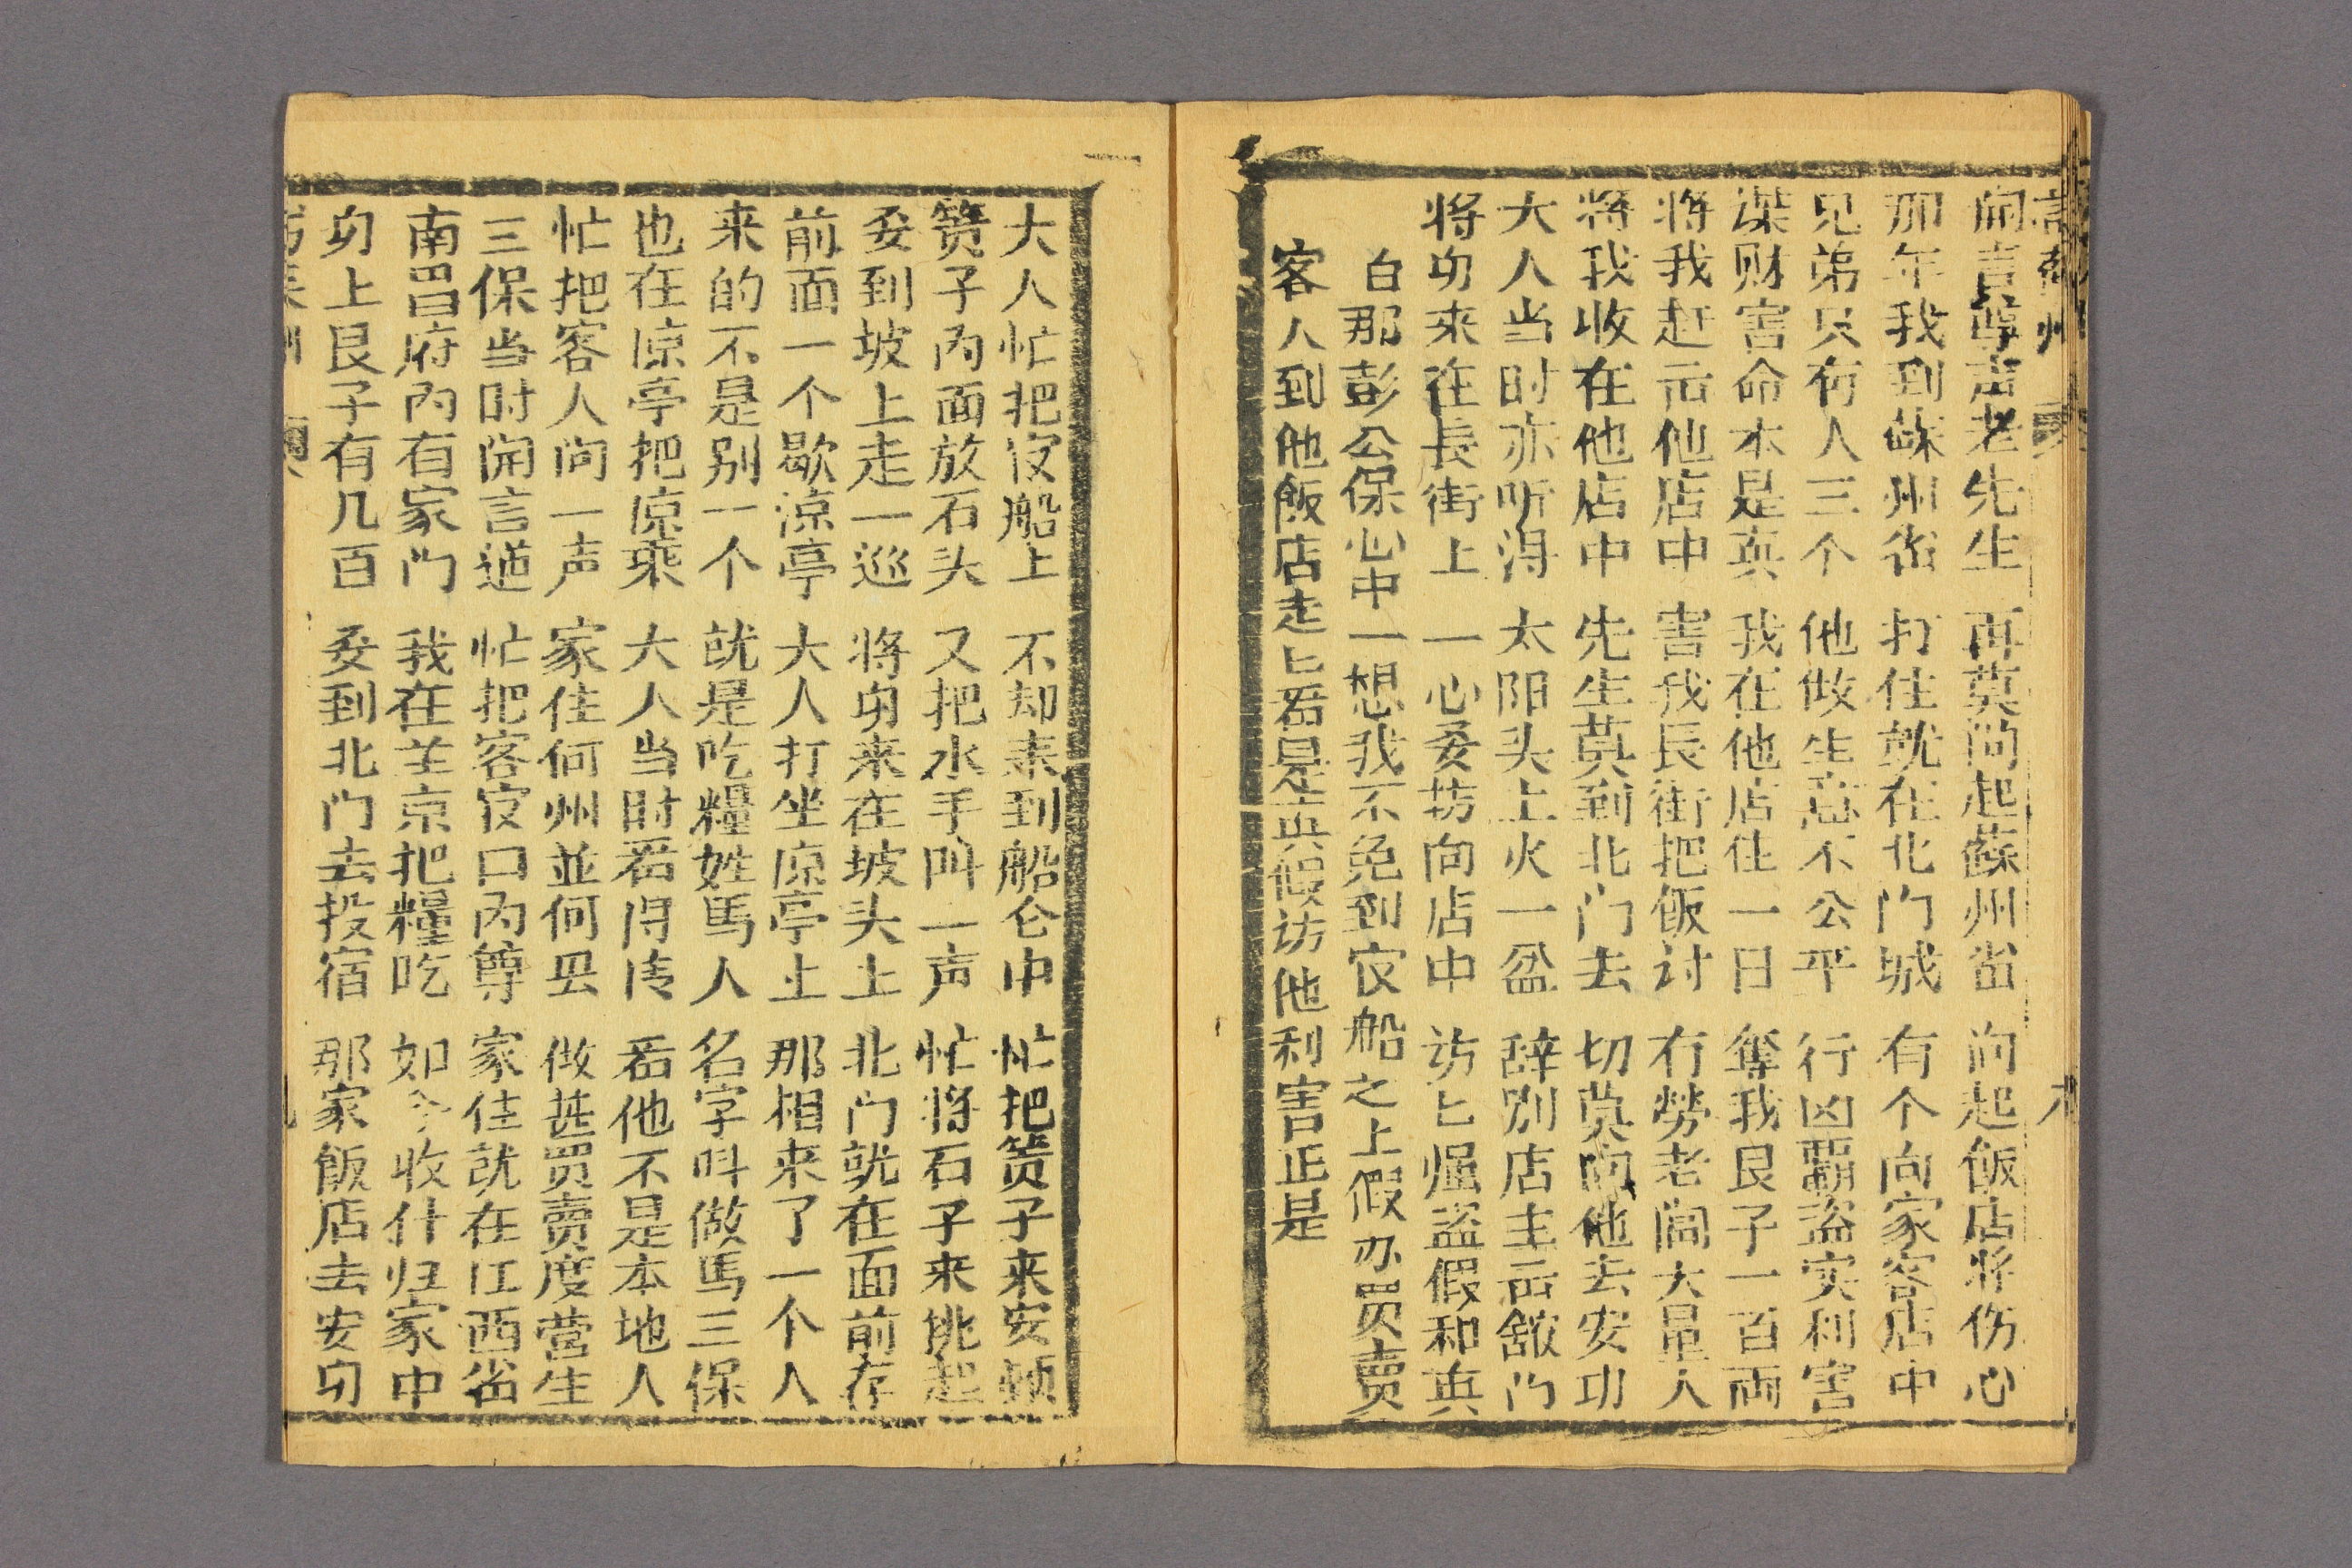 開言尊声老先生 再莫问起蘇州省 问起飯店将伤心
那年我到蘇州省 打住就在北门城 有个向家客店中
兄弟只有人三个 他做生意不公平 行凶霸盗实利害
谋财害命本是真 我在他店住一日 奪我艮子一百両
将我赶元他店中 害我長街把飯讨 有勞老闆大量人
将我收在他店中 先生莫到北门去 切莫向他去安功
大人当时亦听淂 太阳头上火一盆 辞别店主云舘门
将身来在長街上 一心要访向店中 访匕强盗假和真
白那彭公保心中一想我不免到官船之上假办買賣
客人到他飯店走匕看是真假访他利害正是
大人忙把官船上 不却来到船仓中 忙把篢子来安顿
篢子内面放石头 又把水手叫一声 忙将石子来挑起
要到坡上走一巡 将身来在坡头上 北门就在面前存
前面一个歇涼亭 大人打坐凉亭上 那相来了一个人
来的不是别一个 就是吃糧姓馬人 名字叫做馬三保
也在凉亭把凉乘 大人当时看得清 看他不是本地人
忙把客人问一声 家住何州並何县 做甚買賣度营生
三保当时開言道 忙把客官口内尊 家住就在江西省
南昌府内有家门 我在京把糧吃 如今收什归家中
身上艮子有几百 要到北门去投宿 那家飯店去安身